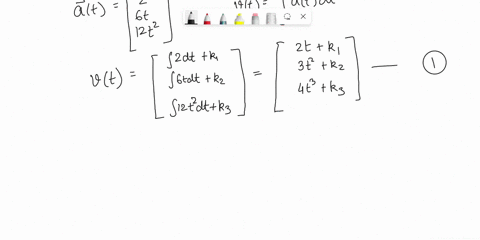 a(t) = [2 6t 12t²] v(t) =
v(t) = [∫2dt + k₁ ∫6tdt + k₂ ∫12t²dt + k₃] = [2t + k₁ 3t² + k₂ 4t³ + k₃] — ①